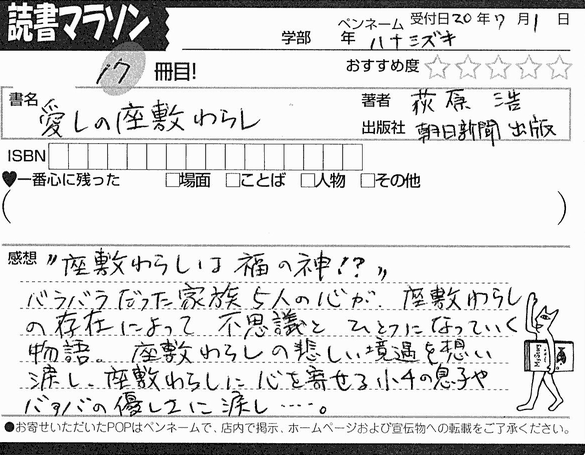 読書マラソン
学部 年 ペンネーム ハナミズキ 受付日 20年7月1日
17 冊目!
おすすめ度 ☆☆☆☆☆
書名 愛しの座敷わらし
著者 荻原 浩
出版社 朝日新聞出版
ISBN
♥一番心に残った □場面 □ことば □人物 □その他
( )
感想 〝座敷わらしは福の神!?〟
バラバラだった家族5人の心が、座敷わらし
の存在によって 不思議と ひとつになっていく
物語。座敷わらしの悲しい境遇を想い
涙し、座敷わらしに心を寄せる小4の息子や
バァバの優しさに涙し……。
●お寄せいただいたPOPはペンネームで、店内で掲示、ホームページおよび宣伝物への転載をご了承ください。